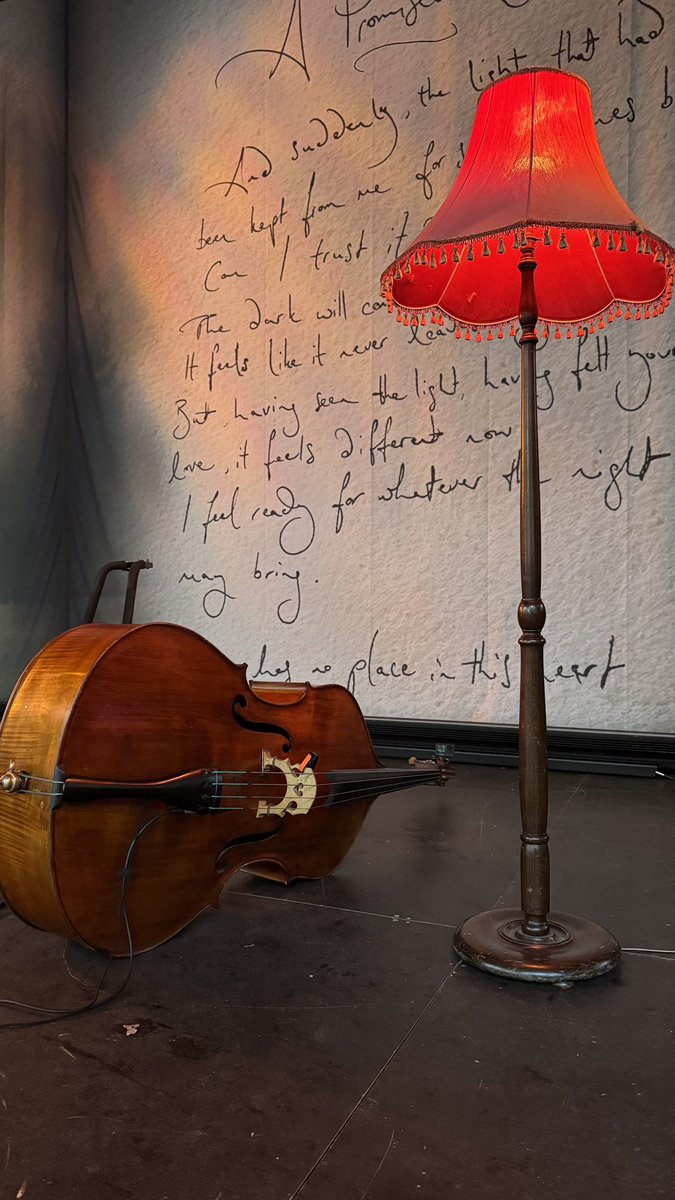 A Promised
And suddenly, the light that had
been kept from me for
Can I trust it
The dark will
It feels like it never
But, having seen the light, having felt your
love, it feels different now
I feel ready for whatever the night
may bring.
has no place in this heart